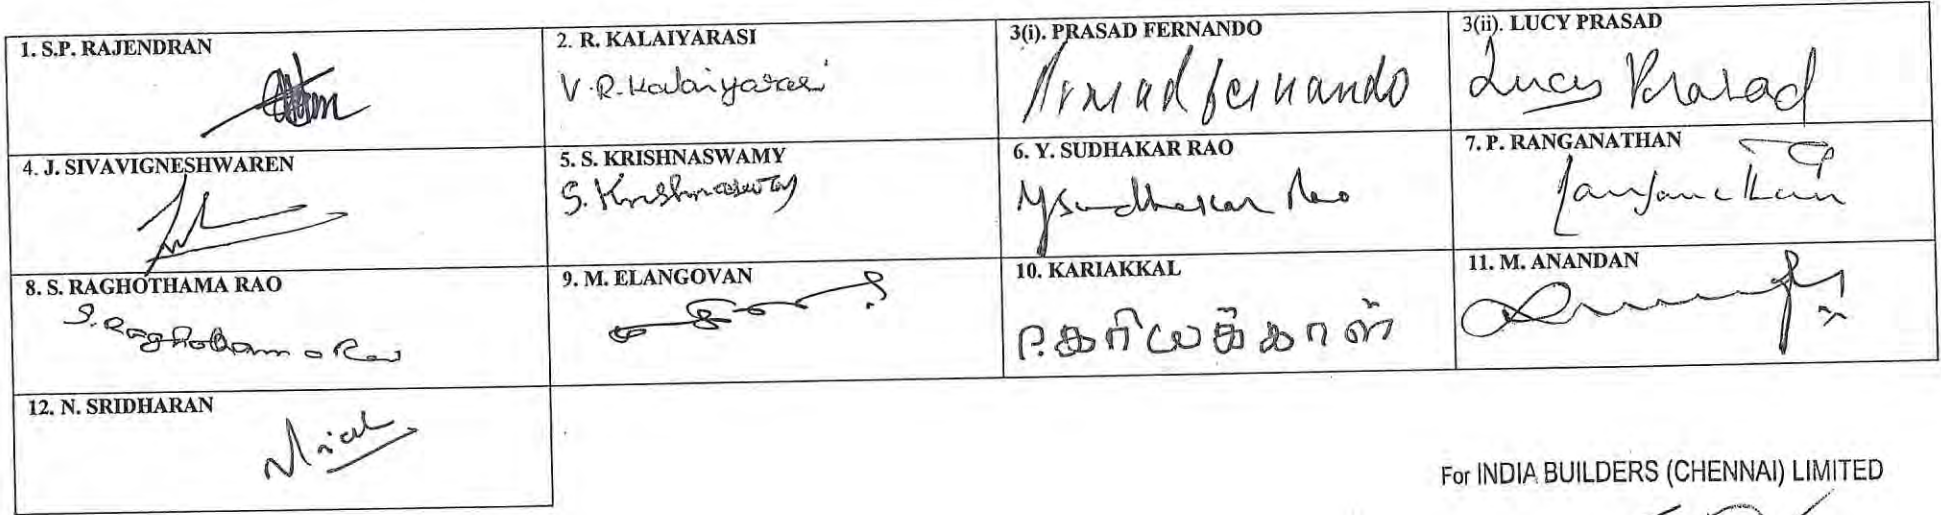 1. S.P. RAJENDRAN
2. R. KALAIYARASI
V.R. Kalaiyarasi
3(i). PRASAD FERNANDO
Prasad fernando
3(ii). LUCY PRASAD
Lucy Prasad
4. J. SIVAVIGNESHWAREN
5. S. KRISHNASWAMY
S. Krishnaswamy
6. Y. SUDHAKAR RAO
Y Sudhakar Rao
7. P. RANGANATHAN
8. S. RAGHOTHAMA RAO
S. Raghothama Rao
9. M. ELANGOVAN
10. KARIAKKAL
11. M. ANANDAN
12. N. SRIDHARAN
For INDIA BUILDERS (CHENNAI) LIMITED